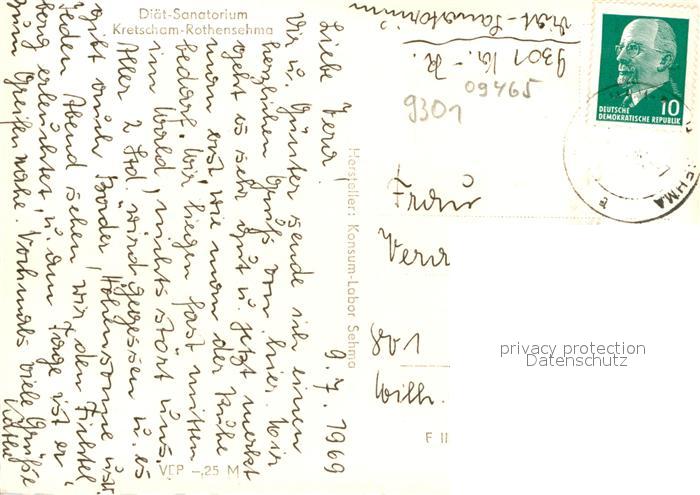 Diät-Sanatorium
Kretscham-Rothensehma
9.7.1969
Liebe Vera!
Dir u. Günter sende ich einen
herzlichen Gruß von hier. Mir
geht es sehr gut u. jetzt merkt
man erst, wie man der Ruhe
bedarf. Wir liegen fast mitten
im Wald, nichts stört uns.
Aller 2 Std. wird gegessen u. es
gibt auch Bäder, Höhensonne usw.
Jeden Abend sehen wir den Fichtel-
berg erleuchtet, u. am Tage ist er
zum Greifen nahe. Vielmals viele Grüße
Käthe
VEP -,25 M
Hersteller: Konsum-Labor Sehma
Diät-Sanatorium
9301 K.-R.
09465
9301
10
DEUTSCHE
DEMOKRATISCHE REPUBLIK
EHMA
a
Frau
Vera
801
Wilh.
F II
privacy protection
Datenschutz